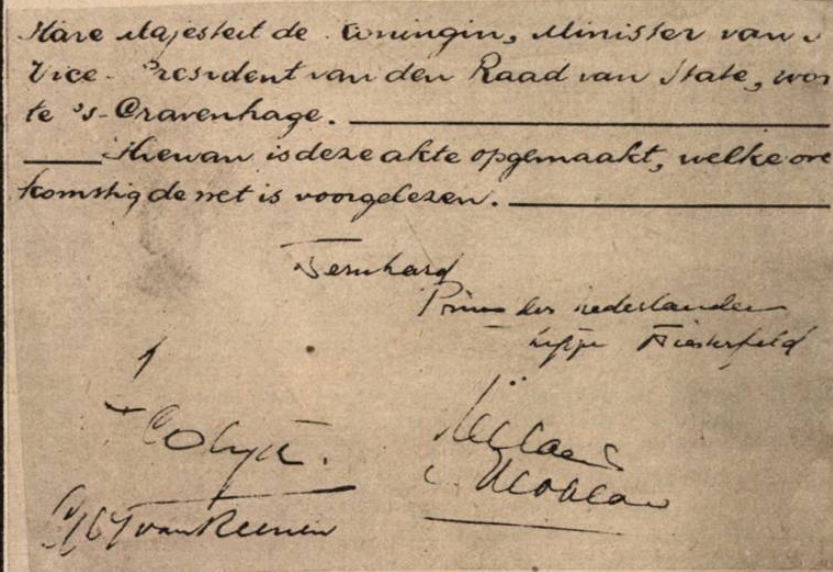 Hare Majesteit de Koningin, Minister van
Vice-President van den Raad van State, wor
te 's-Gravenhage.
Hiervan is deze akte opgemaakt, welke ove
komstig de wet is voorgelezen.
Bernhard
Prins der Nederlanden
Lippe Biesterfeld
Colijn.
van Reenen